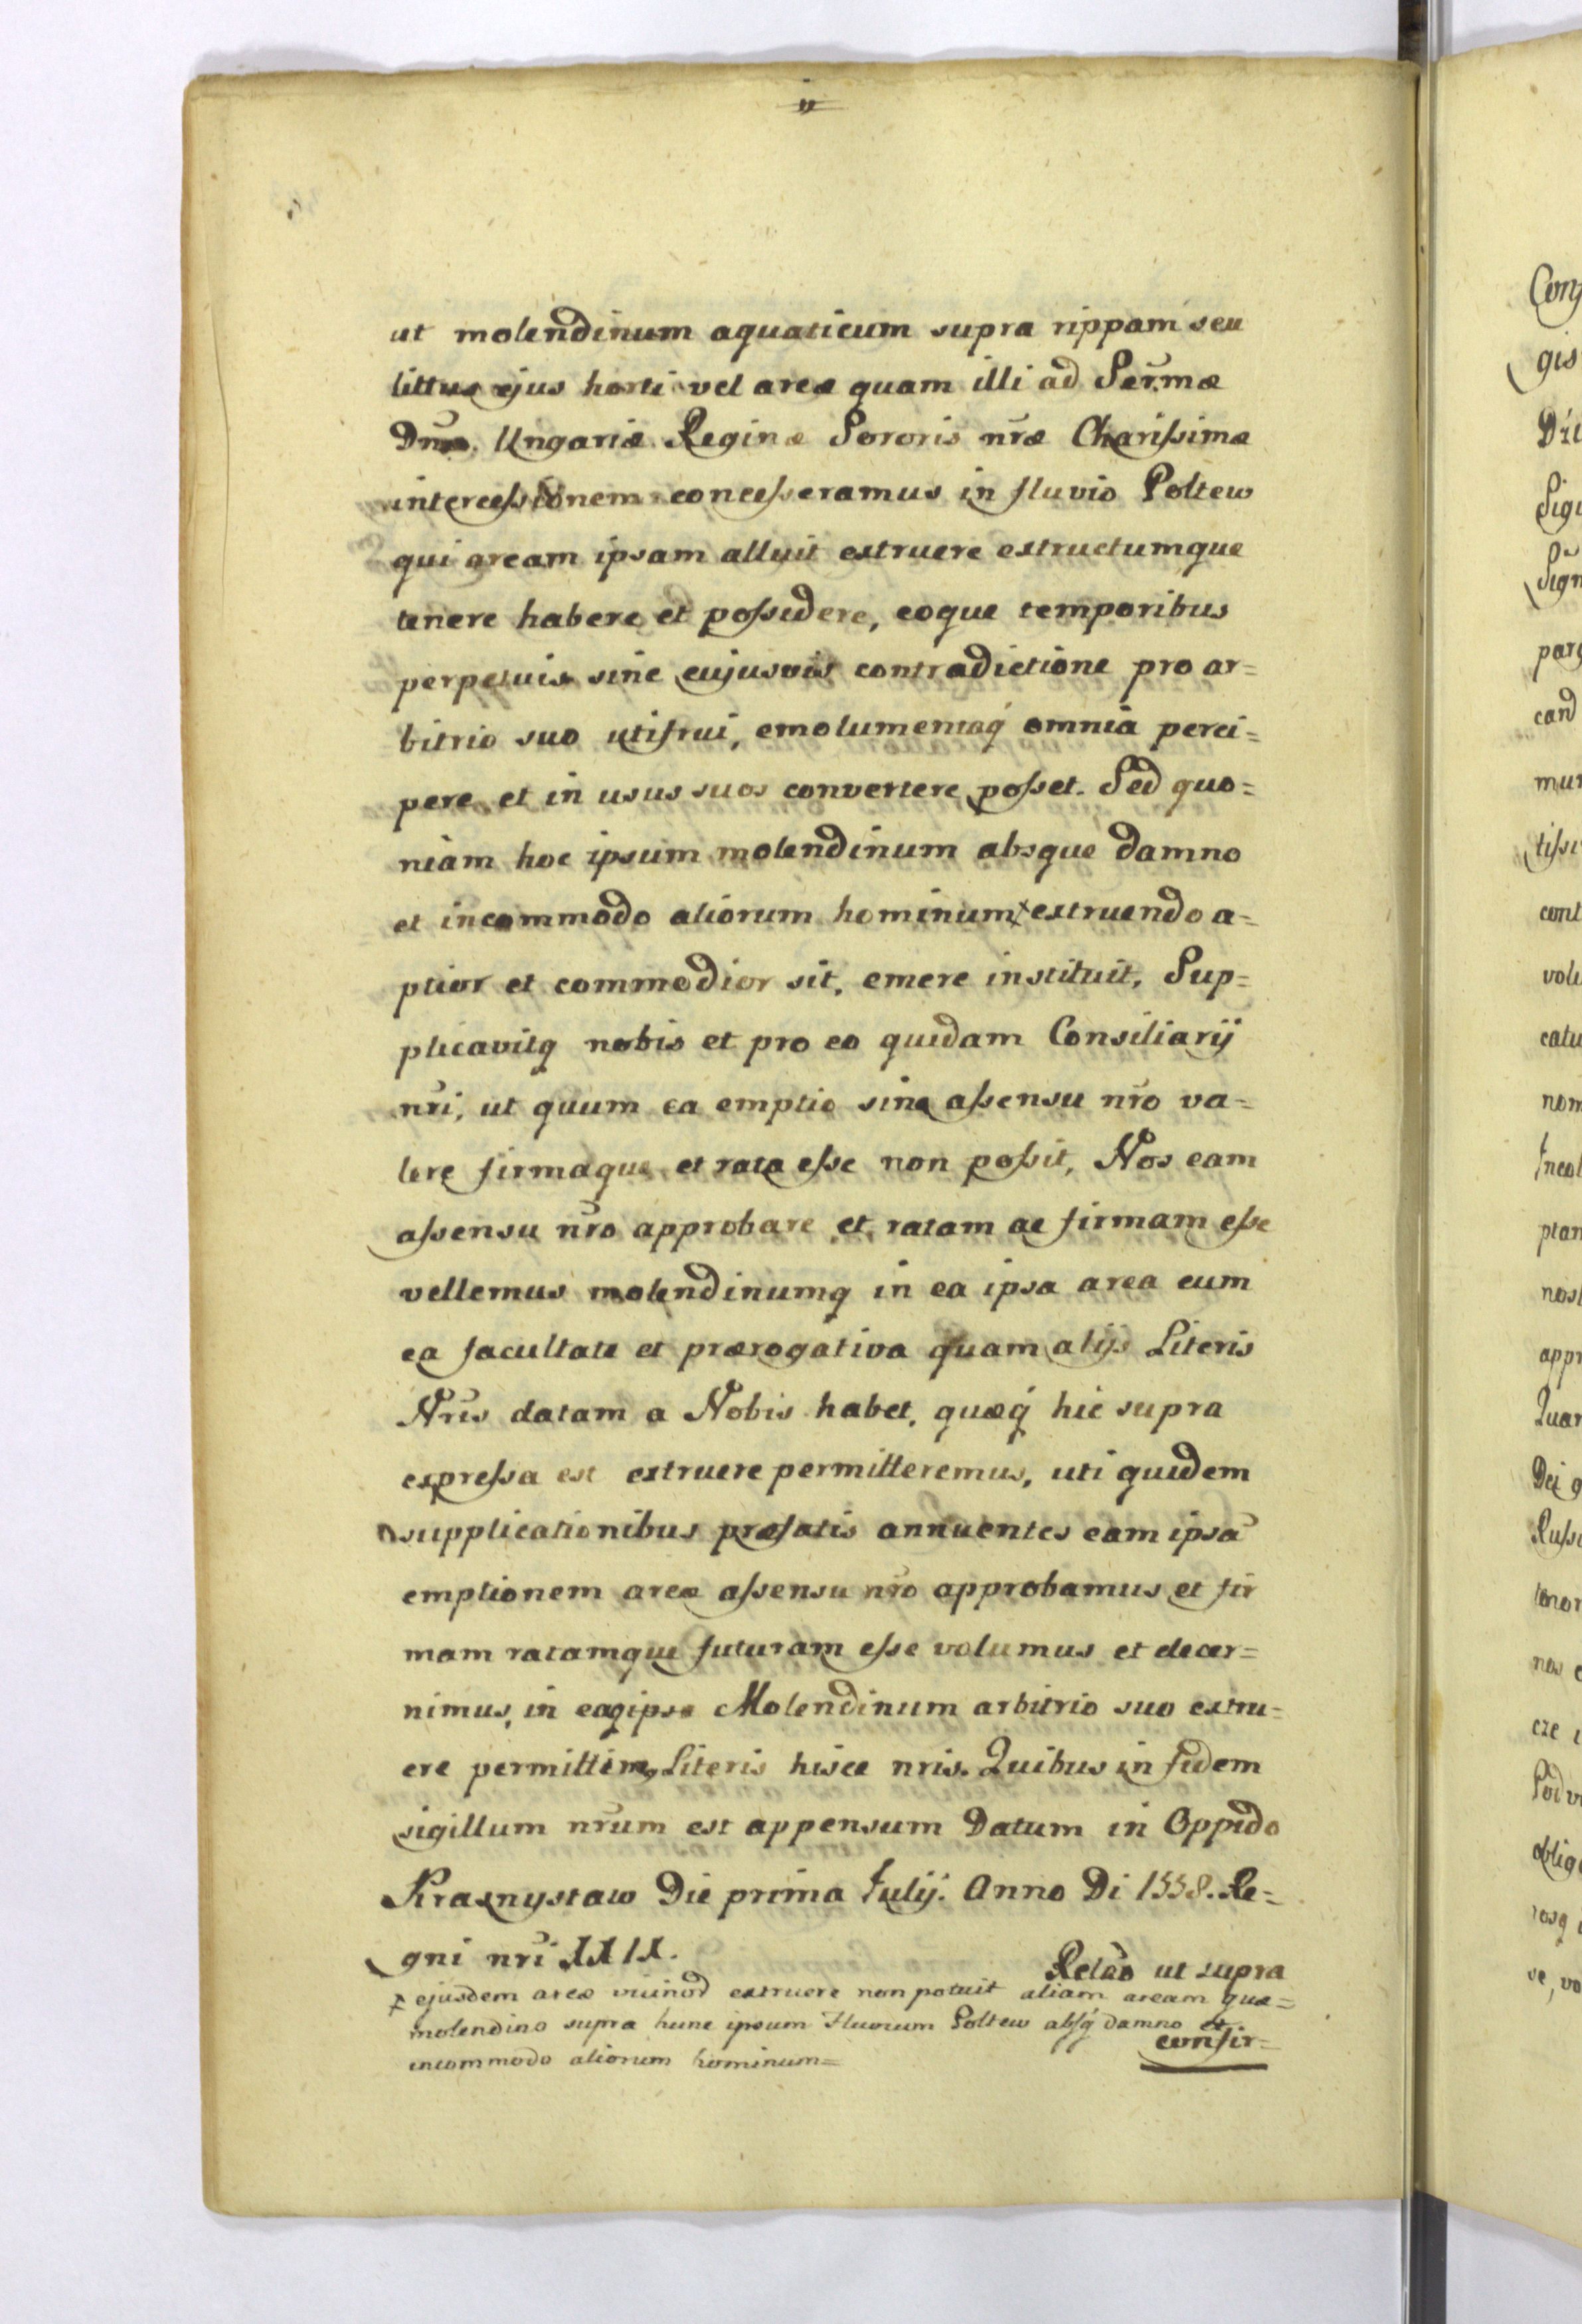 ut molendinum aquaticum supra rippam seu
littus ejus horti vel areæ quam illi ad Serm̃æ
Dnæ. Ungariæ Reginæ Sororis nr̃æ Charissimæ
intercessionem concesseramus in fluvio Poltew
qui aream ipsam alluit extruere extructumque
tenere habere et possidere, eoque temporibus
perpetuis sine cujusvis contradictione pro ar=
bitrio suo utifrui, emolumentaq́ omnia perci=
pere et in usus suos convertere posset. Sed quo=
niam hoc ipsum molendinum absque damno
et incommodo aliorum hominum ⨯ extruendo a=
ptior et commodior sit, emere instituit, Sup=
plicavitq nobis et pro eo quidam Consiliarij
nr̃i, ut quum ea emptio sine assensu nr̃o va=
lere firmaque et rata esse non possit, Nos eam
assensu nr̃o approbare et ratam ac firmam esse
vellemus molendinumq in ea ipsa area cum
ea facultate et prærogativa quam alijs Literis
Nr̃is datam a Nobis habet, quæq́ hic supra
expressa est extruere permitteremus, uti quidem
supplicationibus præfatis annuentes eam ipsã
emptionem areæ assensu nr̃o approbamus et fir
mam ratamque futuram esse volumus et decer=
nimus, in eaq ipsa Molendinum arbitrio suo extru=
ere permittimꝯ Literis hisce nris. Quibus in fidem
sigillum nr̃um est appensum Datum in Oppido
Krasnystaw Die prima Iulij. Anno Di 1558. Re=
gni nr̃i XXIX.
Relão ut supra
⨯ ejusdem areæ vicinæ extruere non potuit aliam aream quæ=
molendino supra hunc ipsum Fluvium Poltew absq́ damno et
incommodo aliorum hominum=
confir=